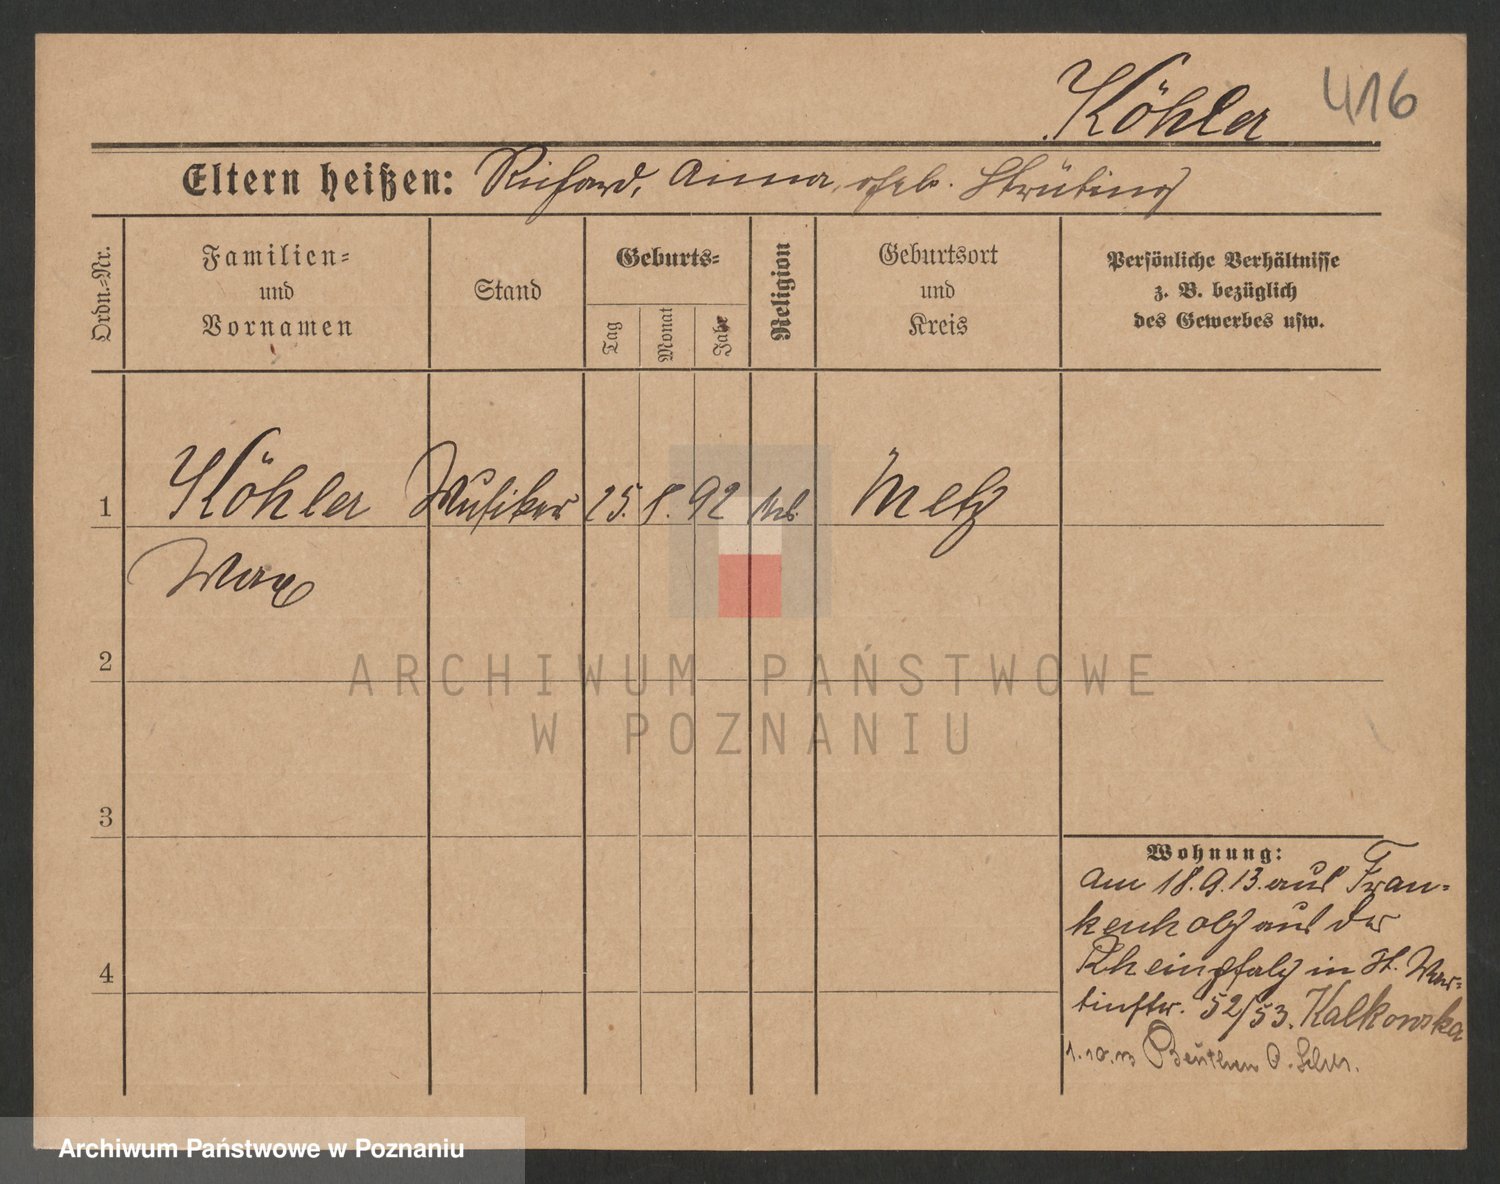 Köhler 416
Eltern heißen: Richard, Anna, geb. Strüting
Ordn.-Nr.
Familien-
und
Vornamen
Stand
Geburts-
Tag
Monat
Jahr
Religion
Geburtsort
und
Kreis
Persönliche Verhältnisse
z. B. bezüglich
des Gewerbes usw.
1 Köhler Musiker 25. 8. 92 Metz
Max
2
3
4
Wohnung:
am 18.9.13. aus Fran-
kenholz aus der
Rheinpfalz in St. Mar-
tinstr. 52/53. Kalkowska
1.10.13 Beuthen O. Schles.
ARCHIWUM PAŃSTWOWE
W POZNANIU
Archiwum Państwowe w Poznaniu